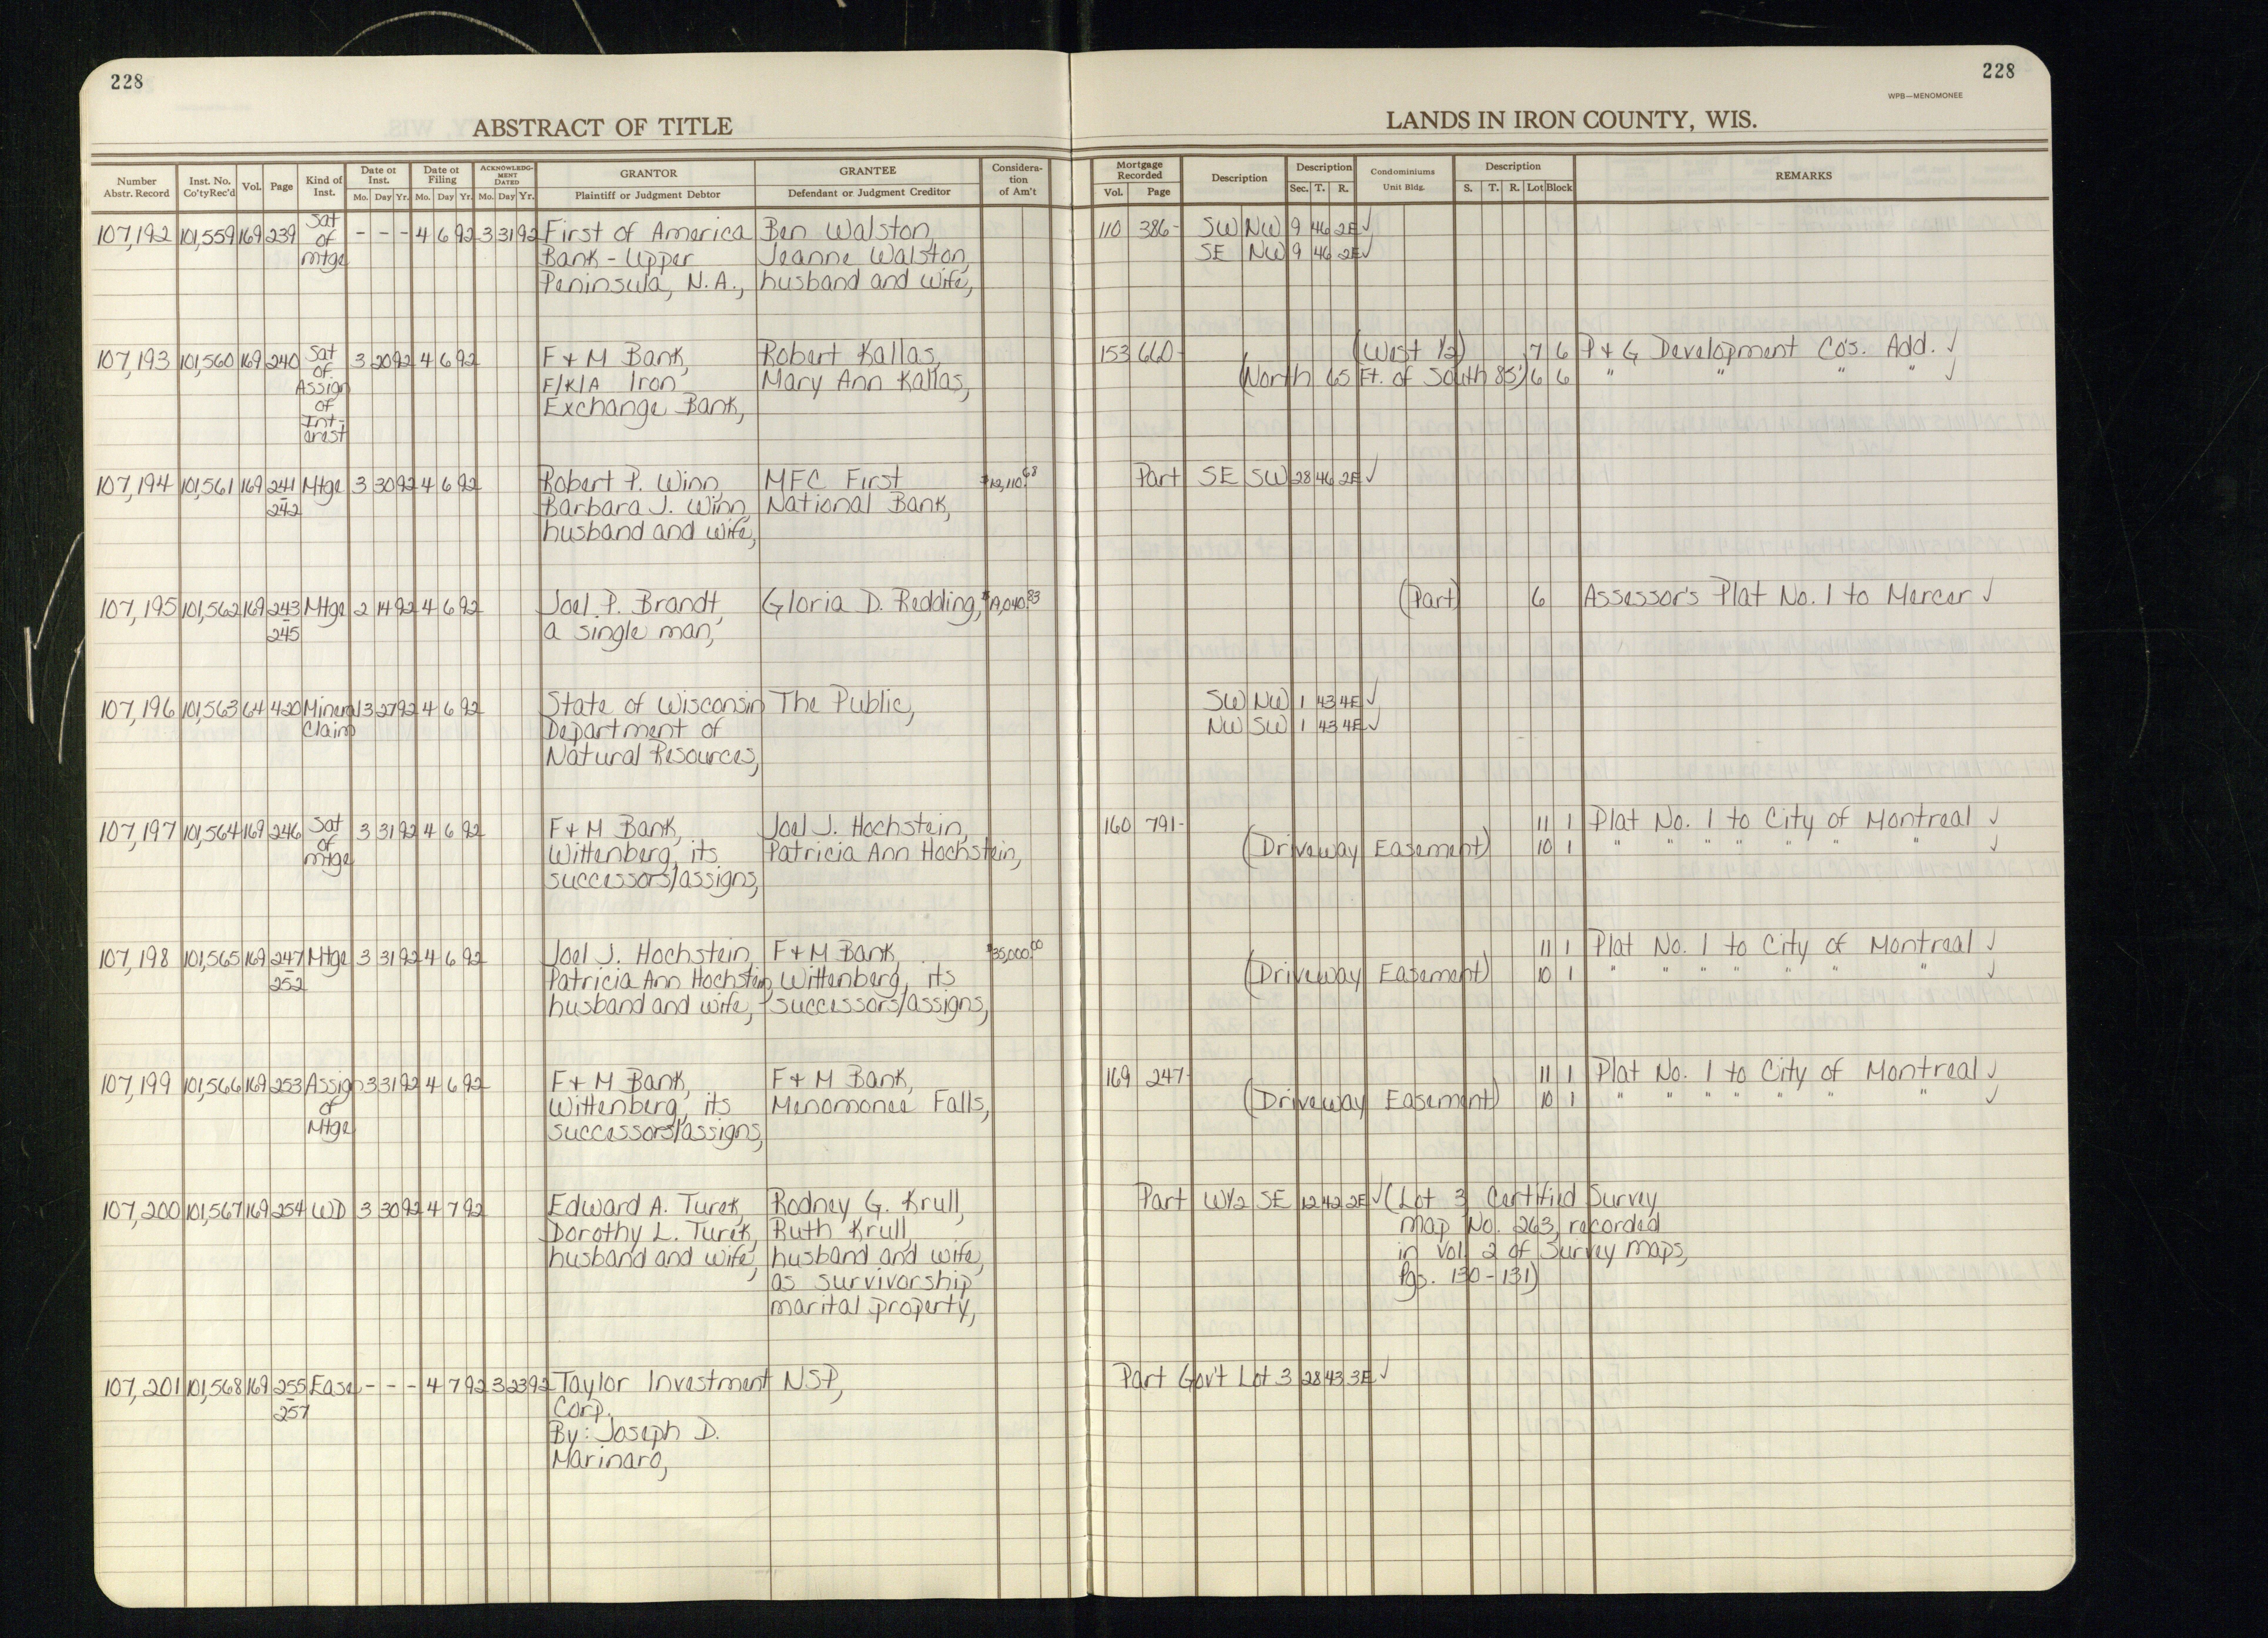 228
228
WPB—MENOMONEE
ABSTRACT OF TITLE
LANDS IN IRON COUNTY, WIS.
Number Abstr. Record | Inst. No. Co'ty Rec'd | Vol. | Page | Kind of Inst. | Date of Inst. Mo. Day Yr. | Date of Filing Mo. Day Yr. | ACKNOWLEDG-MENT DATED Mo. Day Yr. | GRANTOR Plaintiff or Judgment Debtor | GRANTEE Defendant or Judgment Creditor | Considera-tion of Am't | Mortgage Recorded Vol. Page | Description | Description Sec. T. R. | Condominiums Unit Bldg. | Description S. T. R. Lot Block | REMARKS
107,192 101,559 169 239 Sat of mtge - - - 4 6 92 3 31 92 First of America Ben Walston, 110 386- SW NW 9 46 2E ✓
Bank - Upper Jeanne Walston, SE NW 9 46 2E ✓
Peninsula, N.A., husband and wife,
107,193 101,560 169 240 Sat of Assign of Int-erest 3 20 92 4 6 92 F & M Bank, Robert Kallas, 153 660- (West 1/2) 7 6 P & G Development Co's. Add. ✓
F/K/A Iron Mary Ann Kallas, (North 65 Ft. of South 85') 6 6 " " " " ✓
Exchange Bank,
107,194 101,561 169 241-242 Mtge 3 30 92 4 6 92 Robert P. Winn, MFC First $12,110.68 Part SE SW 28 46 2E ✓
Barbara J. Winn, National Bank,
husband and wife,
107,195 101,562 169 243-245 Mtge 2 14 92 4 6 92 Joel P. Brandt, Gloria D. Redding, (Part) 6 Assessor's Plat No. 1 to Mercer ✓
a single man,
107,196 101,563 64 420 Mineral Claim 3 27 92 4 6 92 State of Wisconsin The Public, SW NW 1 43 4E ✓
Department of NW SW 1 43 4E ✓
Natural Resources,
107,197 101,564 169 246 Sat of mtge 3 31 92 4 6 92 F & M Bank, Joel J. Hochstein, 160 791- 11 1 Plat No. 1 to City of Montreal ✓
Wittenberg, its Patricia Ann Hochstein, (Driveway Easement) 10 1 " " " " " " " ✓
successors/assigns,
107,198 101,565 169 247-252 Mtge 3 31 92 4 6 92 Joel J. Hochstein, F & M Bank, $35,000.00 11 1 Plat No. 1 to City of Montreal ✓
Patricia Ann Hochstein, Wittenberg, its (Driveway Easement) 10 1 " " " " " " " ✓
husband and wife, successors/assigns,
107,199 101,566 169 253 Assign of Mtge 3 31 92 4 6 92 F & M Bank, F & M Bank, 169 247- 11 1 Plat No. 1 to City of Montreal ✓
Wittenberg, its Menomonee Falls, (Driveway Easement) 10 1 " " " " " " " ✓
successors/assigns,
107,200 101,567 169 254 WD 3 30 92 4 7 92 Edward A. Turek, Rodney G. Krull, Part W1/2 SE 12 42 2E ✓ (Lot 3 Certified Survey
Dorothy L. Turek, Ruth Krull, Map No. 263, recorded
husband and wife, husband and wife, in Vol. 2 of Survey Maps,
as survivorship Pgs. 130-131)
marital property,
107,201 101,568 169 255-257 Ease - - - 4 7 92 3 23 92 Taylor Investment NSP, Part Gov't Lot 3 28 43 3E ✓
Corp.
By: Joseph D.
Marinaro,